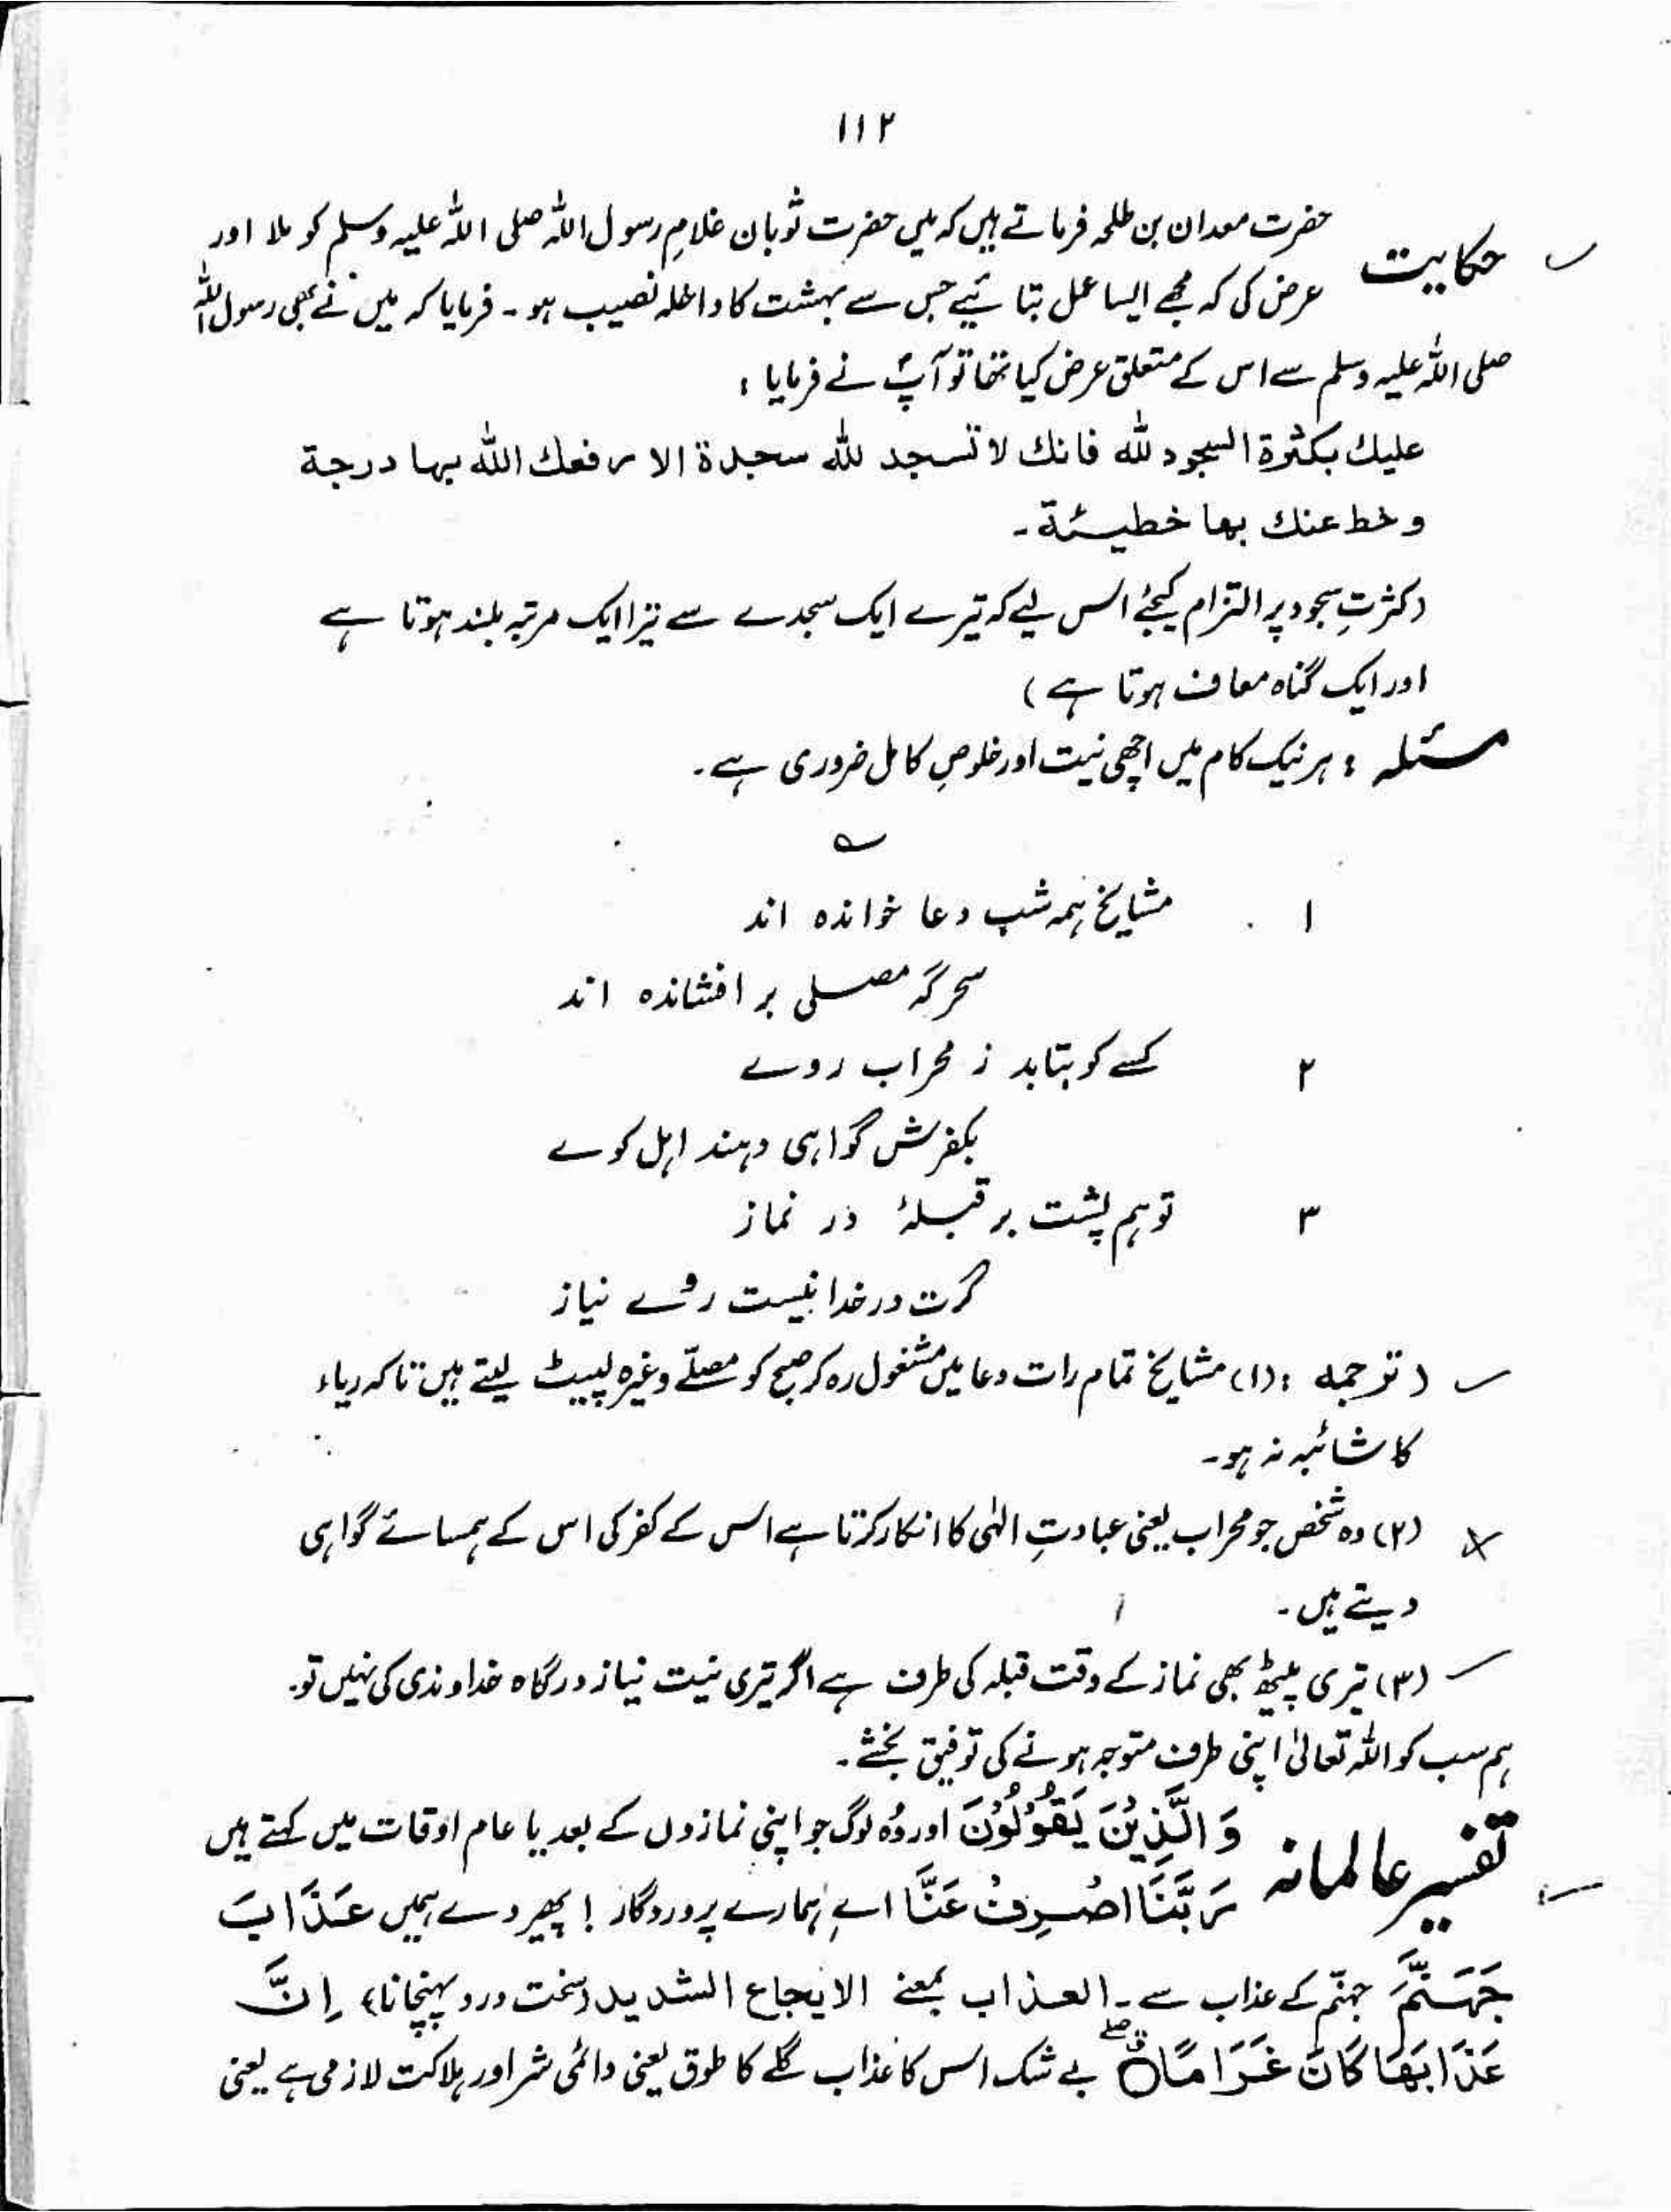 ۱۱۲
حکایت حضرت معدان بن طلحہ فرماتے ہیں کہ میں حضرت ثوبان غلامِ رسول اللہ صلی اللہ علیہ وسلم کو ملا اور
عرض کی کہ مجھے ایسا عمل بتائیے جس سے بہشت کا داخلہ نصیب ہو ۔ فرمایا کہ میں نے بھی رسول اللہ
صلی اللہ علیہ وسلم سے اس کے متعلق عرض کیا تھا تو آپؐ نے فرمایا :
عليك بكثرة السجود لله فانك لا تسجد لله سجدة الا رفعك الله بها درجة
و خط عنك بها خطيئة ۔
(کثرتِ سجود پر التزام کیجئے اس لیے کہ تیرے ایک سجدے سے تیرا ایک مرتبہ بلند ہوتا ہے
اور ایک گناہ معاف ہوتا ہے )
مسئلہ : ہر نیک کام میں اچھی نیت اور خلوصِ کامل ضروری ہے ۔
۱ مشایخ ہمہ شب دعا خواندہ اند
سحر گہ مصلی بر افشاندہ اند
۲ کسے کو بتابد ز محراب روے
بکفرش گواہی دہند اہل کوے
۳ تو ہم پشت بر قبلۂ در نماز
گرت در خدا نیست روے نیاز
( ترجمہ : (۱) مشایخ تمام رات دعا میں مشغول رہ کر صبح کو مصلّے وغیرہ لپیٹ لیتے ہیں تاکہ ریاء
کا شائبہ نہ ہو ۔
(۲) وہ شخص جو محراب یعنی عبادتِ الٰہی کا انکار کرتا ہے اس کے کفر کی اس کے ہمسائے گواہی
دیتے ہیں ۔
(۳) تیری پیٹھ بھی نماز کے وقت قبلہ کی طرف ہے اگر تیری نیت نیاز درگاہ خداوندی کی نہیں تو ۔
ہم سب کو اللہ تعالیٰ اپنی طرف متوجہ ہونے کی توفیق بخشے ۔
تفسیر عالمانہ وَ الَّذِيْنَ يَقُوْلُوْنَ اور وُہ لوگ جو اپنی نمازوں کے بعد یا عام اوقات میں کہتے ہیں
رَبَّنَا اصْرِفْ عَنَّا اے ہمارے پروردگار ! پھیر دے ہمیں عَذَابَ
جَهَنَّمَ جہنّم کے عذاب سے ۔ العذاب بمعنے الایجاع الشدید (سخت درد پہنچانا) اِنَّ
عَذَابَهَا كَانَ غَرَامًا ۝ بے شک اس کا عذاب گلے کا طوق یعنی دائمی شر اور ہلاکت لازمی ہے یعنی